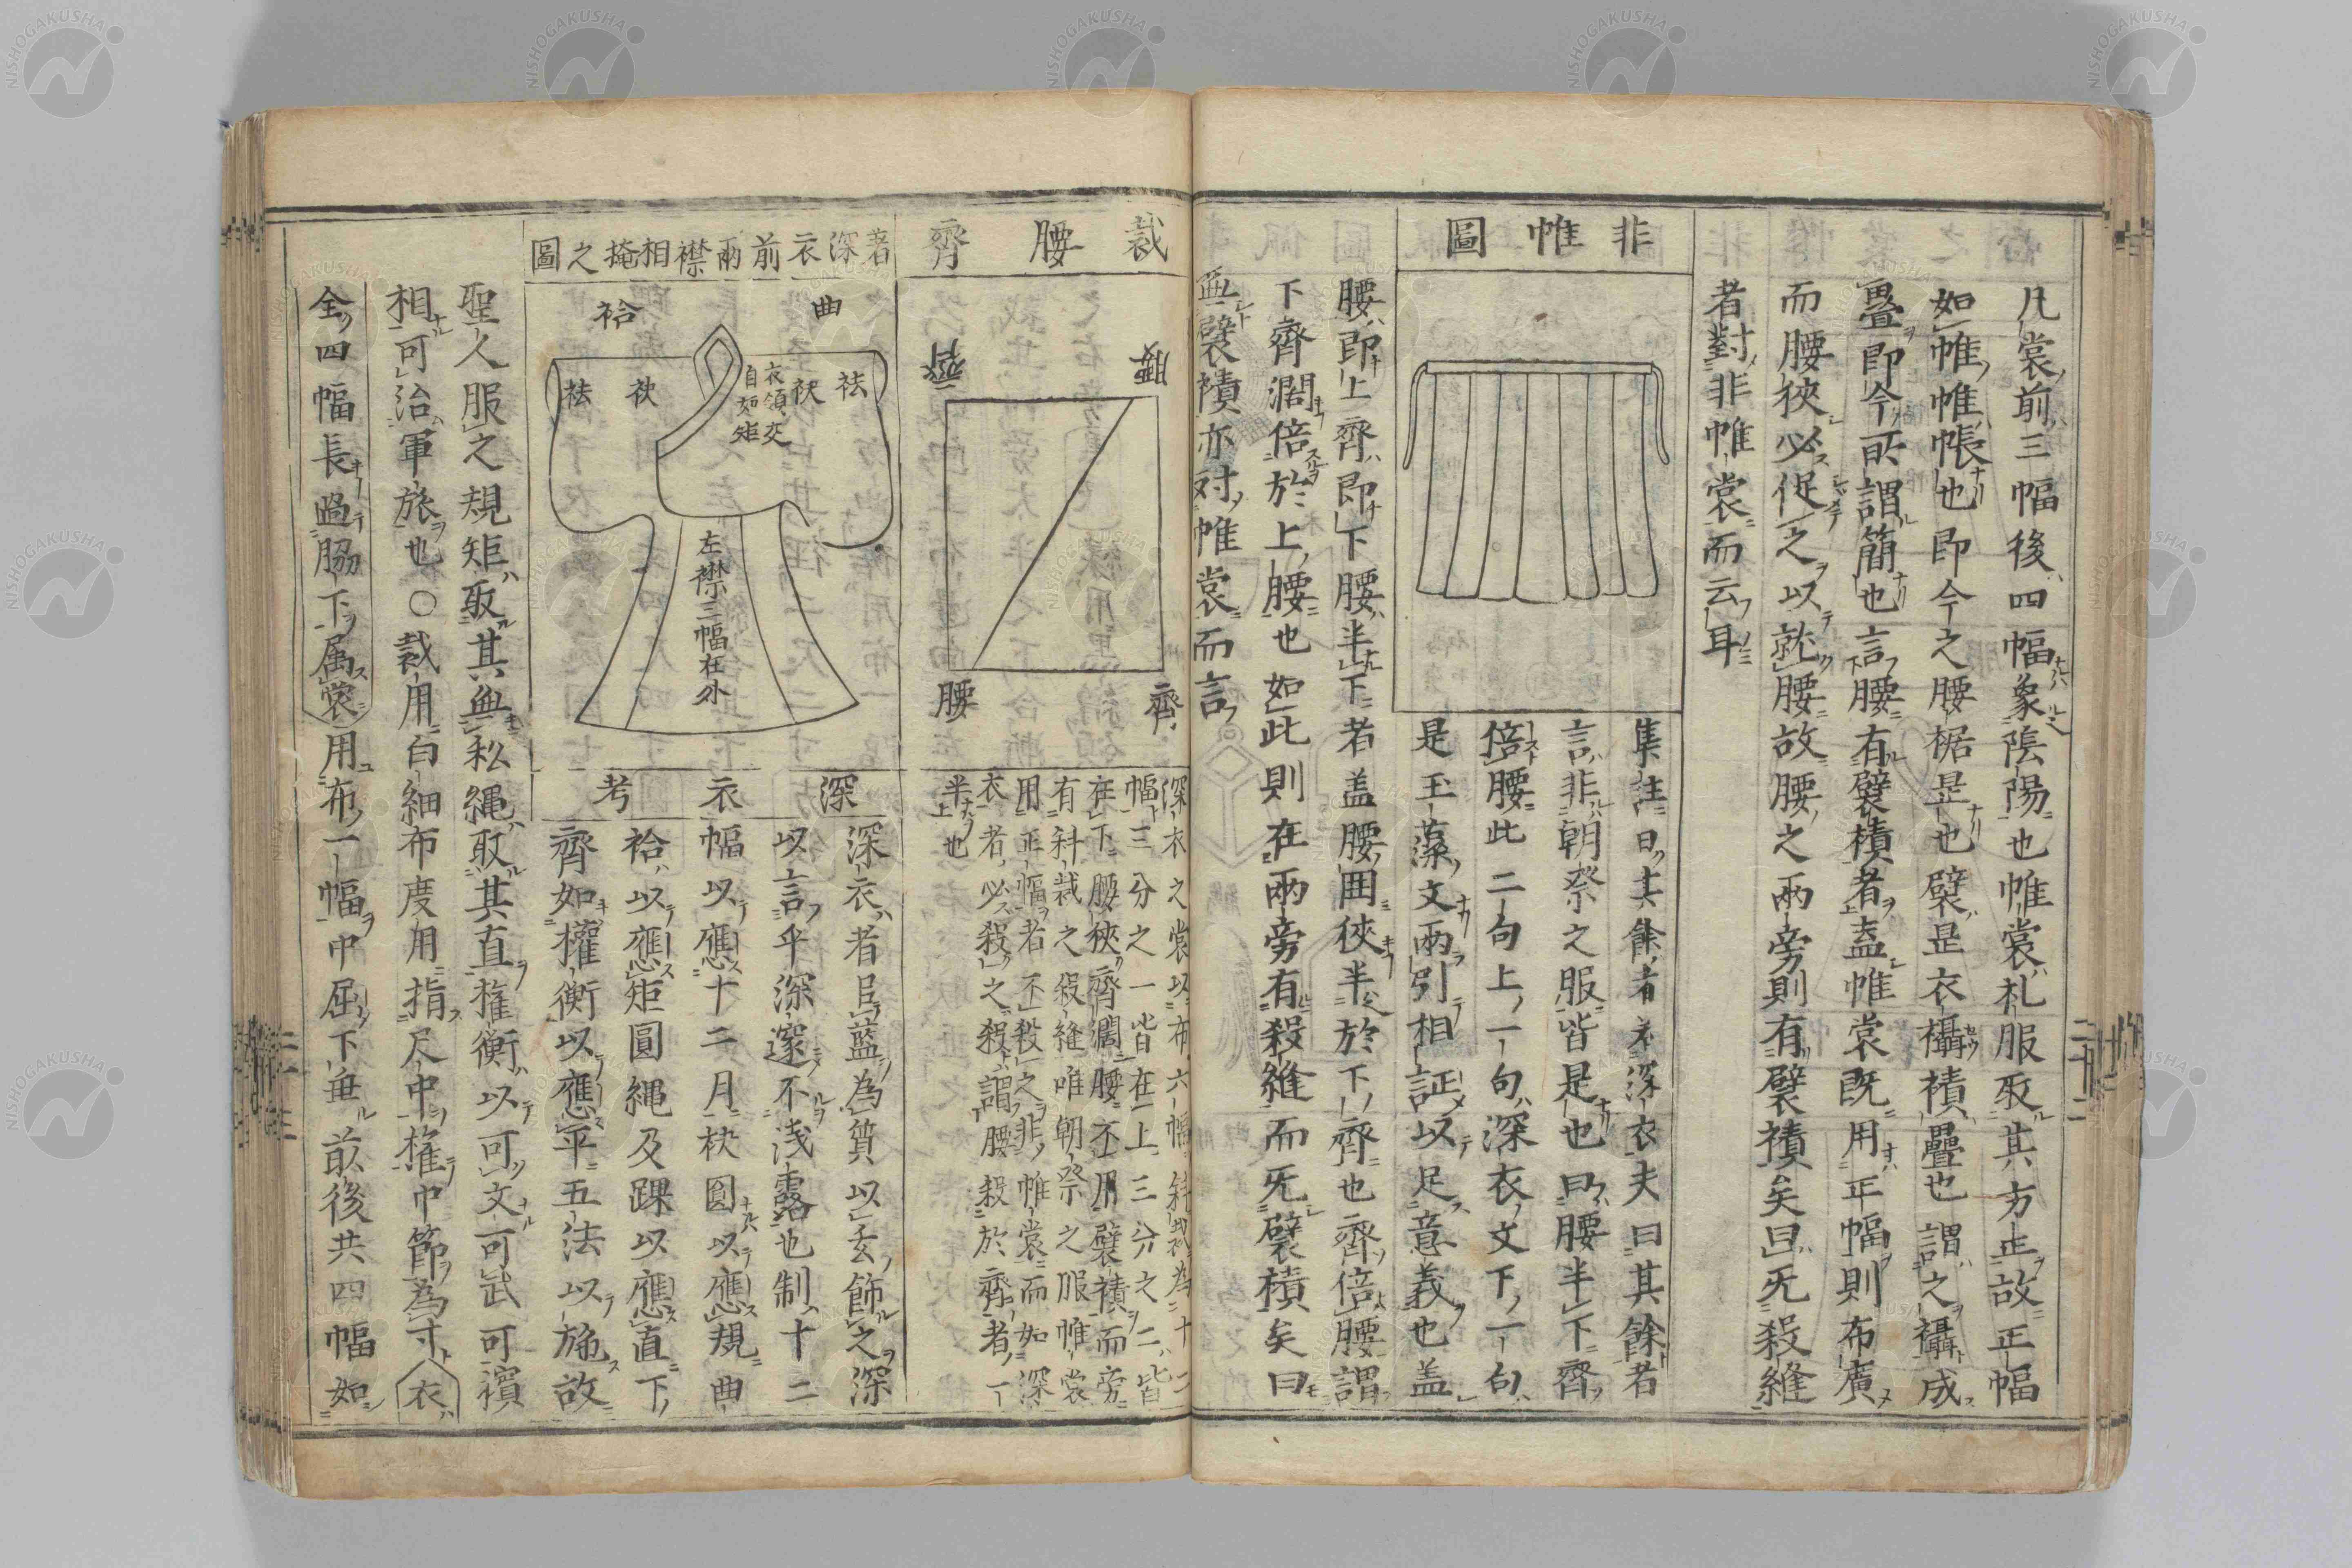 凡裳前三幅後四幅象陰陽也帷裳札服取其方正故正幅
如帷帷帳也即今之腰裾是也襞是衣襵襀疊也謂之襵成
疊即今所謂簡也言腰有襞積者盖帷裳既用正幅則布廣
而腰狹必促之以就腰故腰之兩旁則有襞積矣曰无殺縫
者對非帷裳而云耳
非帷圖
集註曰其餘者衤深衣夫曰其餘者
言非朝祭之服皆是也曰腰半下齊
倍腰此二句上一句深衣文下一句
是玉藻文兩引相証以足意義也盖
腰即上齊即下腰半下者盖腰圍狹半於下齊也齊倍腰謂
下齊濶倍於上腰也如此則在兩旁有殺縫而无襞積矣曰
無襞積亦对帷裳而言
裁腰齊
齊
腰
齊
腰
深衣之裳以布六幅斜裁為十二
幅三分之一皆在上三分之二皆
在下腰狹齊濶腰不用襞積而旁
有斜裁之殺縫唯朝祭之服帷裳
用正幅者不殺之非帷裳而如深
衣者必殺之殺謂腰殺於齊者一
半上也
著深衣前兩襟相掩之圖
曲
袷
袪
袂
衣領交
自如矩
袂
袪
左襟三幅在外
深衣考
深衣者臣藍為質以玄飾之深
以言乎深邃不浅露也制十二
幅以應十二月袂圓以應規曲
袷以應矩圓繩及踝以應直下
齊如權衡以應平五法以施故
聖人服之規矩取其無私繩取其直權衡以可文可武可擯
相可治軍旅也〇裁用白細布度用指尺中權中節為寸衣
全四幅長過脇下属裳用布一幅中屈下垂前後共四幅如